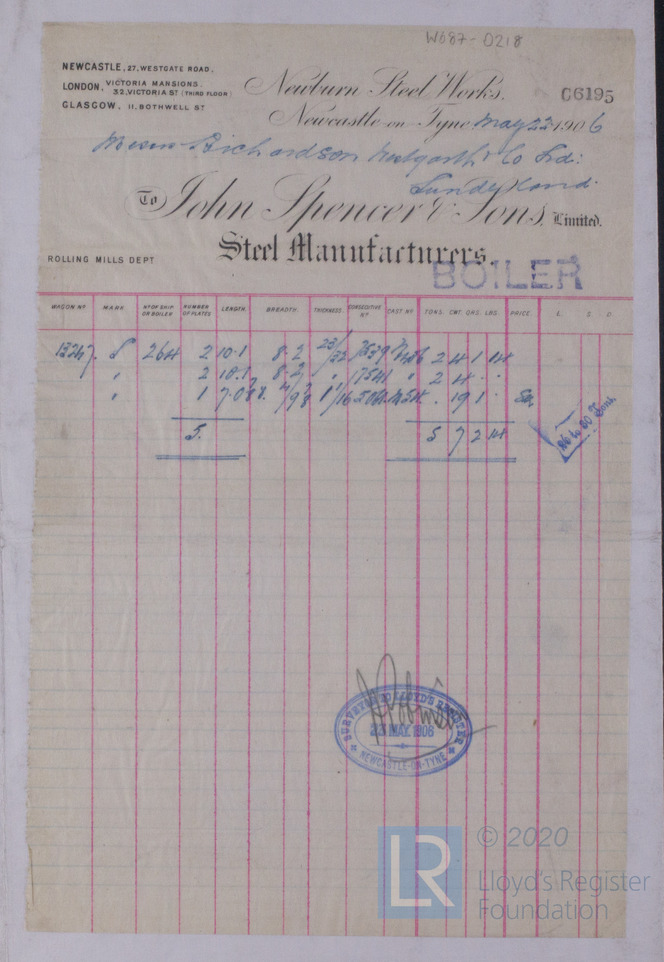 W687-0218
NEWCASTLE, 27, WESTGATE ROAD.
LONDON, VICTORIA MANSIONS.
32, VICTORIA ST (THIRD FLOOR)
GLASGOW, 11, BOTHWELL ST
Newburn Steel Works,
C6195
Newcastle on Tyne May 22 1906
Messrs Richardson Westgarth & Co Ltd:
Sunderland.
To John Spencer & Sons, Limited.
Steel Manufacturers.
ROLLING MILLS DEPT
BOILER
WAGON No MARK No OF SHIP OR BOILER NUMBER OF PLATES LENGTH. BREADTH. THICKNESS. CONSECUTIVE No CAST No TONS. CWT. QRS. LBS. PRICE. £. S. D.
264 2 10.1 8.2 2 4 1 14
2 10.1 8.2 " 2 4
1 7.0 19 1
5. 5 7 2 14
26 to 30 Tons
SURVEYOR TO LLOYD'S REGISTER
23 MAY 1906
NEWCASTLE-ON-TYNE
LR
© 2020
Lloyd's Register
Foundation